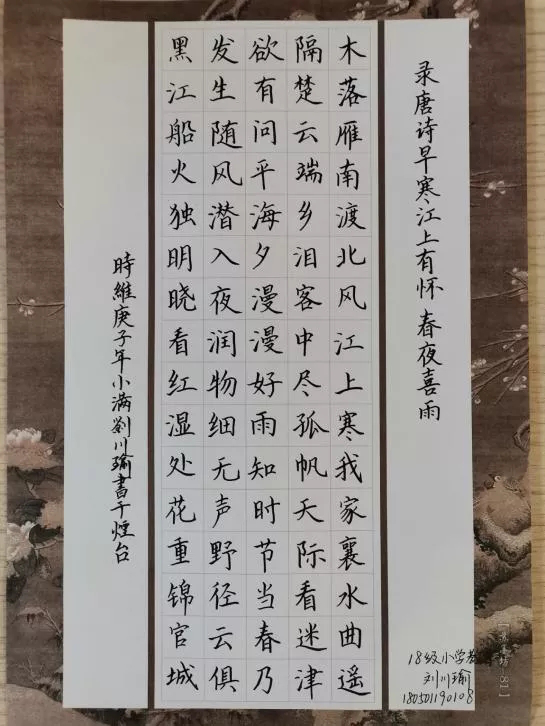 录唐诗早寒江上有怀 春夜喜雨
木落雁南渡北风江上寒我家襄水曲遥
隔楚云端乡泪客中尽孤帆天际看迷津
欲有问平海夕漫漫好雨知时节当春乃
发生随风潜入夜润物细无声野径云俱
黑江船火独明晓看红湿处花重锦官城
時維庚子年小满劉川瑜書于煙台
18级小学教
刘川瑜
180501190108